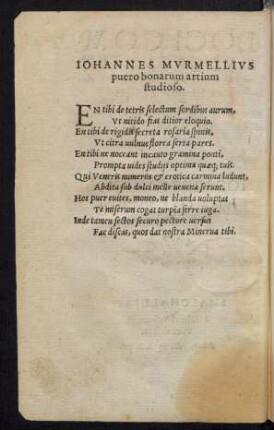 IOHANNES MVRMELLIVS
puero bonarum artium
studioso.
EN tibi de tetris selectum sordibus aurum,
Vt nitido fias ditior eloquio.
En tibi de rigidis secreta rosaria spinis,
Vt citra uulnus florea serta pares.
En tibi ne noceant incauto gramina ponti,
Prompta uides studijs optima quæq; tuis.
Qui Veneris numeros & erotica carmina ludunt,
Abdita sub dulci melle uenena serunt.
Hos puer euites, moneo, ne blanda uoluptas
Te miserum cogat turpia ferre iuga.
Inde tamen sectos securo pectore uersus
Fac discas, quos dat nostra Minerua tibi.